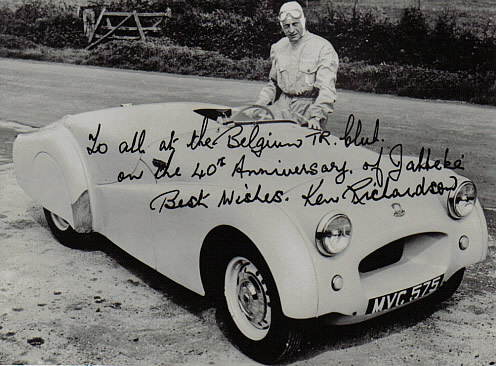 To all at the Belgium TR. Club.
on the 40th Anniversary. of Jabbeke
Best Wishes. Ken Richardson
MVC 575